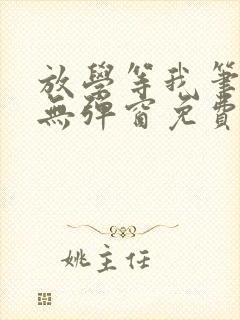 放學等我筆
無彈窗免費
姚主任